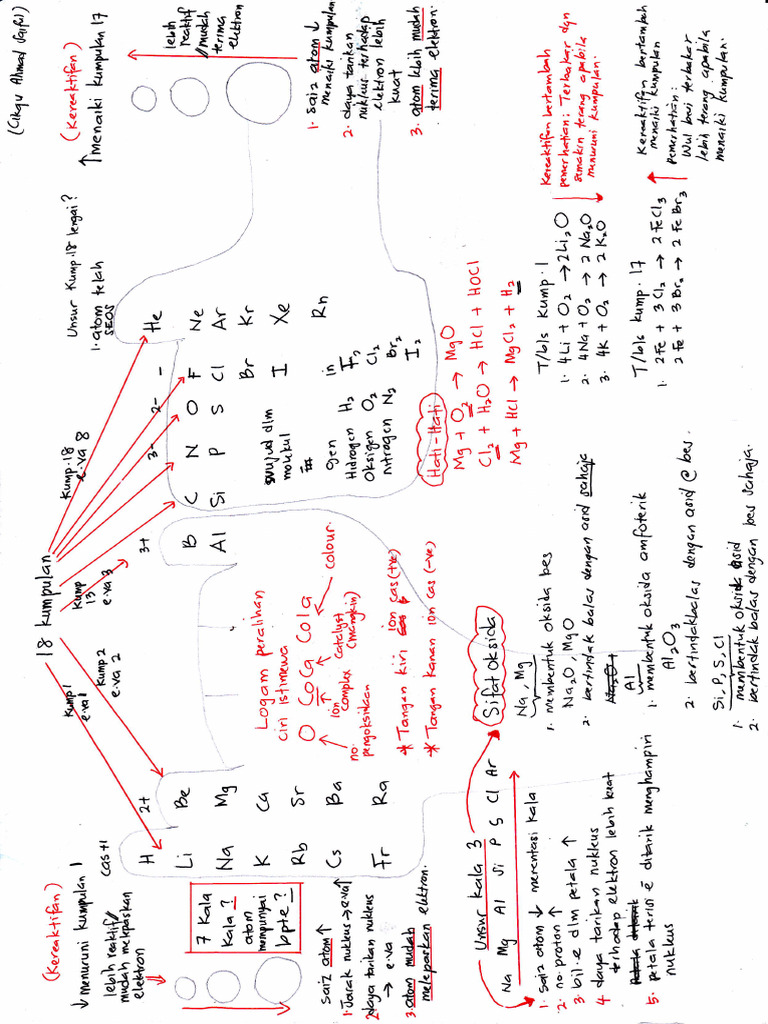 (Cikgu Ahmad Saiful)
18 kumpulan
(Kereaktifan)
↓ menuruni kumpulan 1
lebih reaktif/
mudah melepaskan
elektron
7 Kala
Kala?
atom
mempunyai
bpte?
saiz atom ↑
1. Jarak nukleus → e.va ↑
2. daya tarikan nukleus
→ e.va
3. atom mudah
meleparkan elektron.
Kump 1
e.va 1
Kump 2
e.va 2
Kump
13
e.va 3
Kump.18
e.va 8
cas +1
2+
3+
3-
2-
-
H
He
Li Be B C N O F Ne
Na Mg Al Si P S Cl Ar
K Ca Br Kr
Rb Sr I Xe
Cs Ba Rn
Fr Ra
Logam peralihan
ciri istimewa
O CoCa Cola
no.
pengoksidaan
ion
complex
catalyst
(mangkin)
colour.
* Tangan kiri ion cas (+ve)
* Tangan kanan ion cas (-ve)
wujud dlm
molekul
gen in
Hidrogen H2 F2
Oksigen O2 Cl2
nitrogen N2 Br2
I2
Unsur Kump.18 lengai?
1. atom telah
SEOS
(Kereaktifan)
↑ Menaiki kumpulan 17
lebih
reaktif
/mudah
terima
elektron
1. saiz atom ↓
menaiki kumpulan
2. daya tarikan
nukleus terhadap
elektron lebih
kuat
3. atom lbih mudah
terima elektron.
Unsur Kala 3
Na Mg Al Si P S Cl Ar
1. saiz atom ↓ merentasi kala
2. no. proton ↑
3. bil. e dlm petala ↑
4. daya tarikan nukleus
terhadap elektron lebih kuat
5. petala terisi e ditarik menghampiri
nukleus
Sifat Oksida
Na, Mg
1. membentuk oksida bes
Na2O, MgO
2. bertindak balas dengan asid sahaja
Al
1. membentuk oksida amfoterik
Al2O3
2. bertindakbalas dengan asid @ bes.
Si, P, S, Cl
1. membentuk oksida asid
2. bertindak balas dengan bes sahaja.
Hati-Hati
Mg + O2 → MgO
Cl2 + H2O → HCl + HOCl
Mg + HCl → MgCl2 + H2
T/bls Kump. 1
1. 4Li + O2 → 2Li2O
2. 4Na + O2 → 2Na2O
3. 4K + O2 → 2K2O
Kereaktifan bertambah
pemerhatian: Terbakar dgn
semakin terang apabila
menuruni kumpulan.
T/bls kump. 17
1. 2Fe + 3Cl2 → 2FeCl3
2Fe + 3Br2 → 2FeBr3
Kereaktifan bertambah
menaiki kumpulan
Pemerhatian:
Wul besi terbakar
lebih terang apabila
menaiki kumpulan.